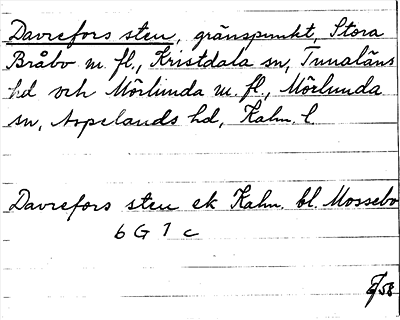 Davrefors sten, gränspunkt, Stora
Bråbo m. fl., Kristdala sn, Tunaläns
hd och Mörlunda m. fl., Mörlunda
sn, Aspelands hd, Kalm. l.
Davrefors sten ek Kalm. bl. Mossebo
6 G 7 c
/58